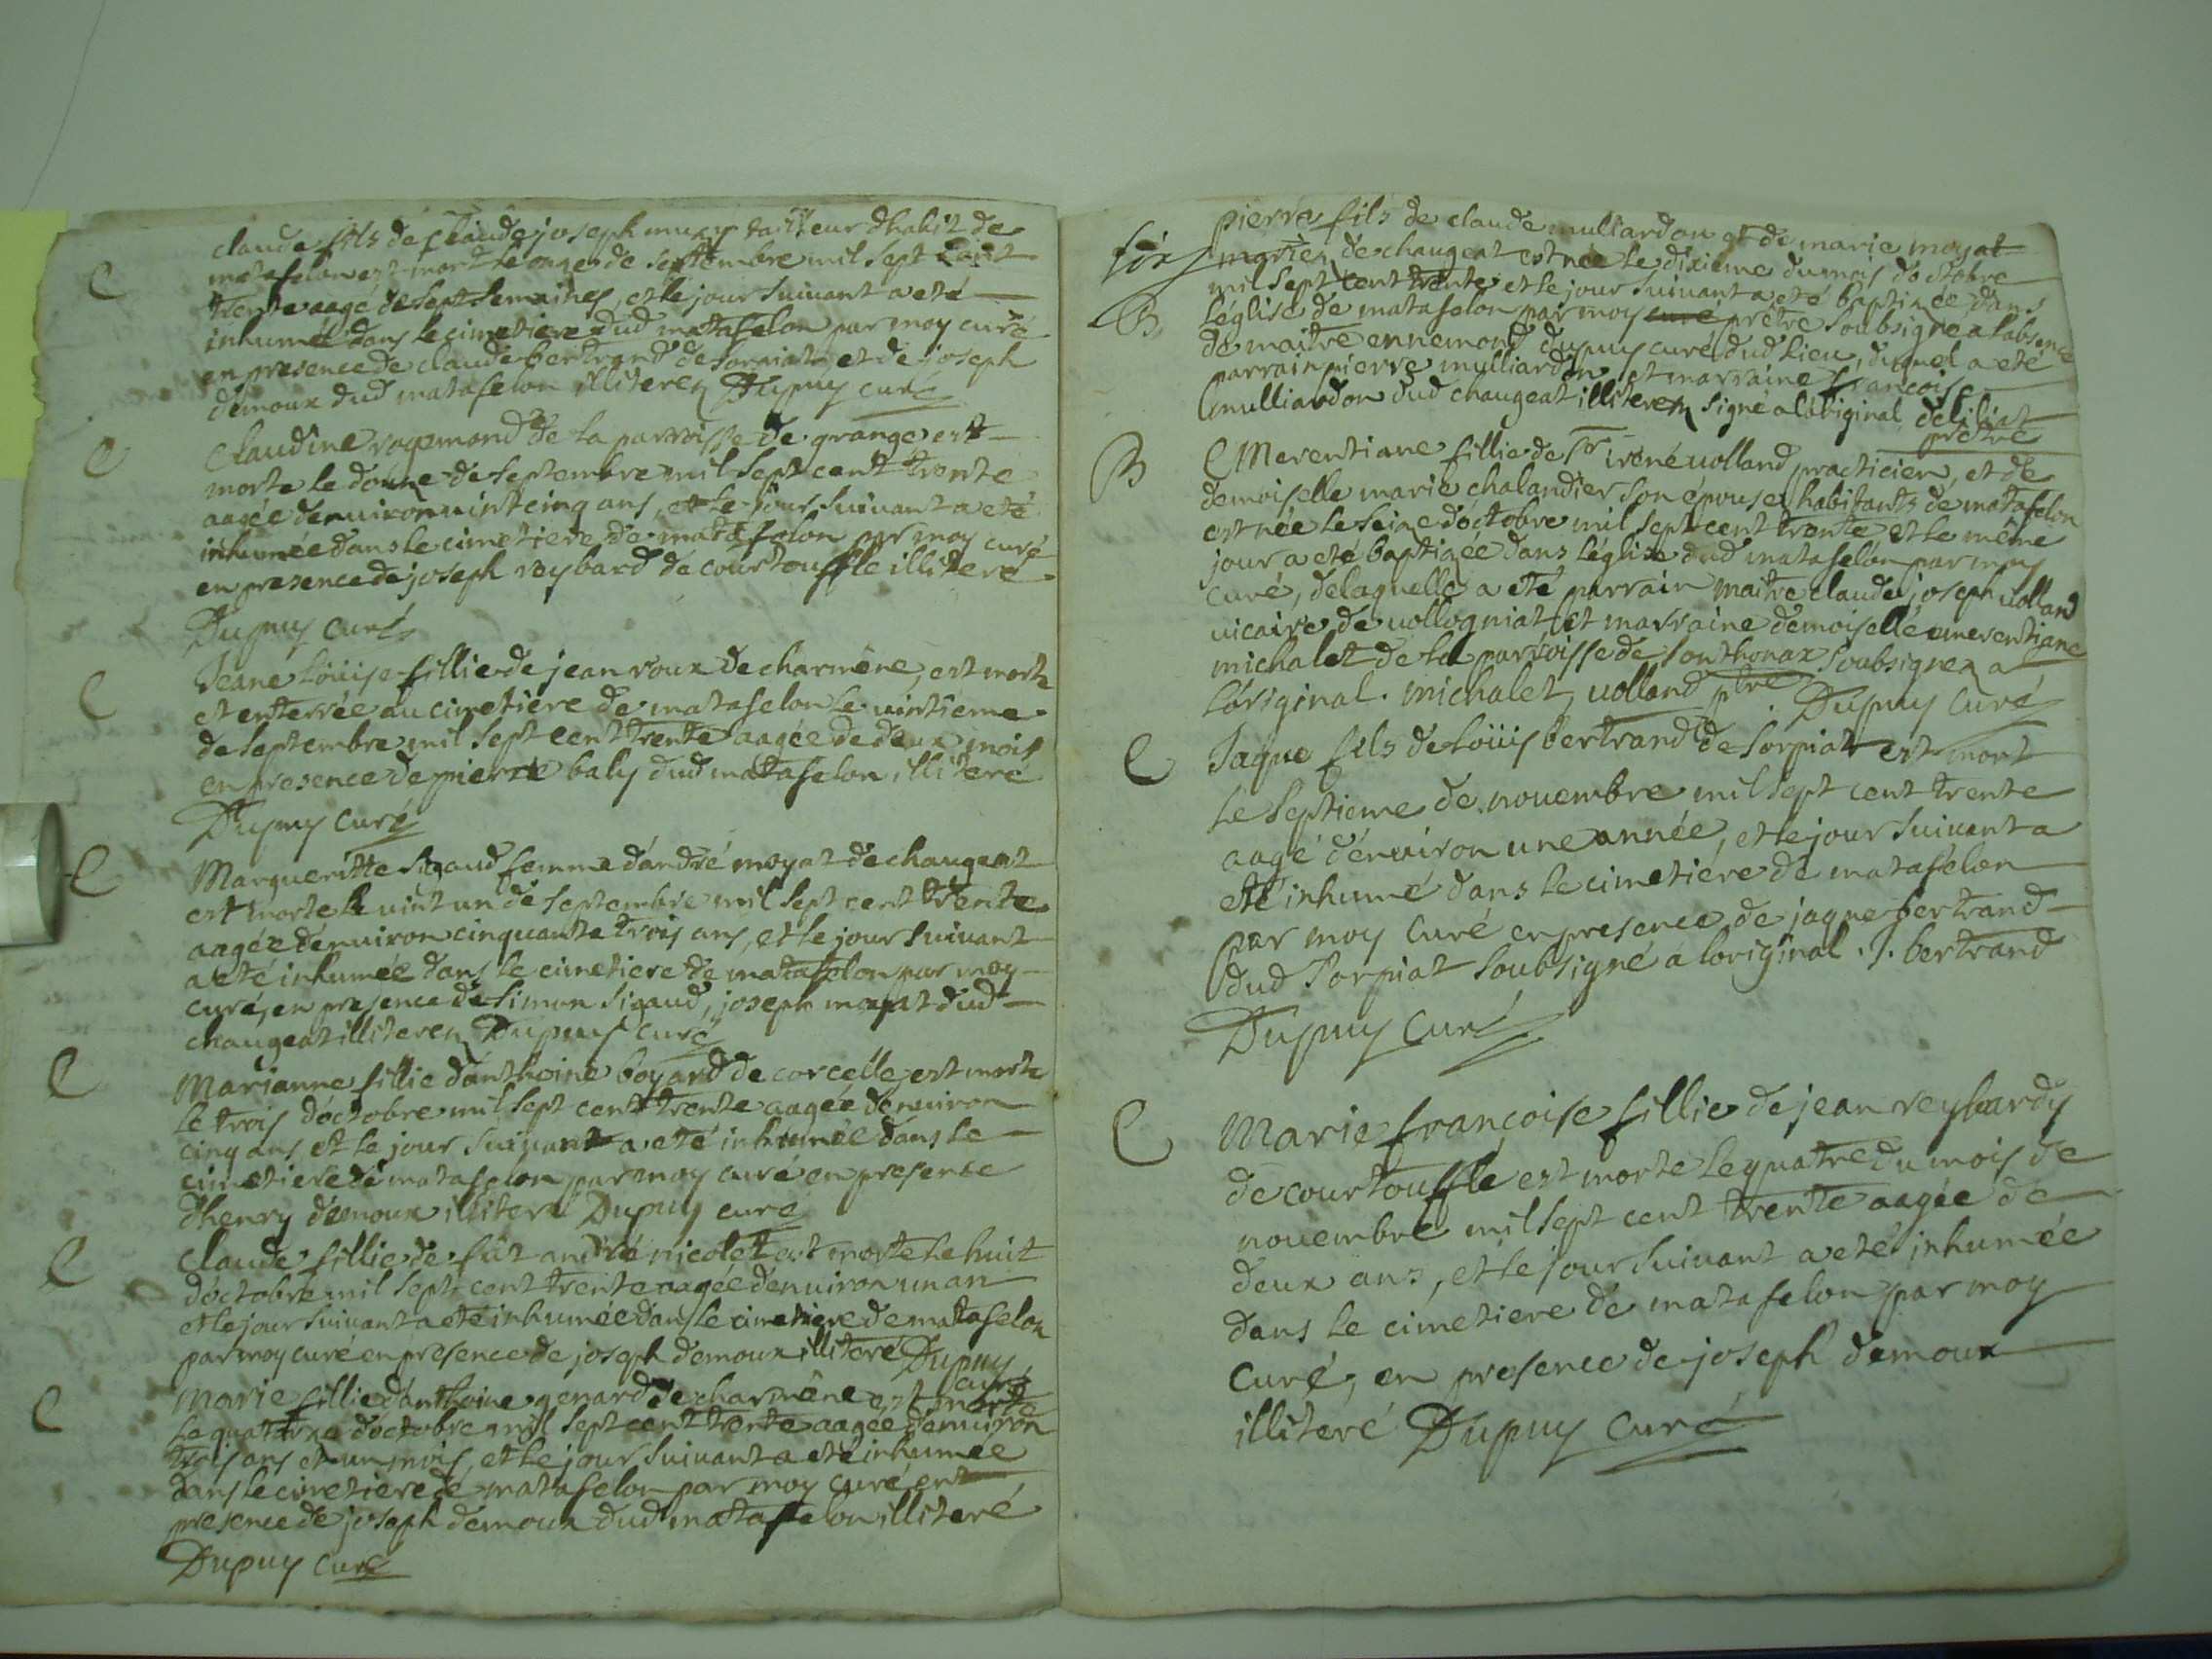 claude fils de claude joseph mury tailleur dhabit de
C
matafelon est mort le onze de septembre mil sept cent
trente aagé de sept semaines, et le jour suivant a eté
inhumé dans le cimetiere dud matafelon par moy curé
en presence de claude bertrand de sorpiat et de joseph
démoux dud matafelon illiterez Dupuy curé
C
Claudine raymond de la parroisse de grange est
morte le douze de septembre mil sept cent trente
aagée denuiron uint cinq ans, et le jour suiuant a eté
inhumée dans le cimetiere de matafelon par moy curé
en presence de joseph reybard de courtouffle illiteré
Dupuy curé
C
Jeane loüise fillie de jean roux de charmêne, est morte
et enterrée au cimetiere de matafelon le uintième
de septembre mil sept cent trente aagée de deux mois
en presence de pierre baly dud matafelon illiteré
Dupuy curé
C
Margueritte sigaud femme d'andré moyat de chaugeat
est morte le uint un de septembre mil sept cent trente
aagée dénuiron cinquante trois ans, et le jour suiuant
a eté inhumée dans le cimetiere de matafelon par moy
curé, en presence de simon sigaud, joseph moyat dud
chaugeat illiterez Dupuy curé
C
Marianne fillie d'anthoine boyard de corcelle, est morte
le trois d'octobre mil sept cent trente aagée dénuiron
cinq ans et le jour suiuant a eté inhumée dans le
cimetiere de matafelon par moy curé en presence
dhenry démoux illiteré Dupuy curé
C
Claude fillie de fût andré nicolet est morte le huit
d'octobre mil sept cent trente aagée dénuiron un an
et le jour suiuant a eté inhumée dans le cimetiere de matafelon
par moy curé en presence de joseph démoux illiteré Dupuy
curé
C
Marie fillie d'anthoine genard de charmêne est morte
le quattorze d'octobre mil sept cent trente aagée dénuiron
trois ans et un mois, et le jour suiuant a eté inhumée
dans le cimetiere de matafelon par moy curé en
presence de joseph démoux dud matafelon illiteré
Dupuy curé
pierre fils de claude mulliardon et de marie moyat
mariez de chaugeat est née le dixieme du mois d'octobre
mil sept cent trente et le jour suiuant a eté baptizée dans
B
l'église de matafelon par moy curé prêtre soubsigné a l'absence
de maitre ennemond Dupuy curé dud lieu, duquel a eté
parrain pierre mulliardon et marraine françoise
mulliardon dud chaugeat illiterez signé a l'original déliliat
prêtre
B
Emerentiane fillie de Sr irené uolland practicien, et de
demoiselle marie chalandier son épouse habitants de matafelon
est née le seize d'octobre mil sept cent trente et le même
jour a eté baptizée dans l'églize dud matafelon par moy
curé, delaquelle a eté parrain maitre claude joseph uolland
uicaire de uollogniat et marraine demoiselle emerentiane
michalet de la parroisse de sonthonax soubsignez a
l'original. michalet, uolland ptre. Dupuy curé
C
Jaque fils de loüis bertrand de sorpiat est mort
le septieme de nouembre mil sept cent trente
aagé dénuiron une année, et le jour suiuant a
eté inhumé dans le cimetiere de matafelon
par moy curé en presence de jaque bertrand
dud sorpiat soubsigné a loriginal. J. bertrand
Dupuy curé
C
Marie françoise fillie de jean reybardy
de courtouffle est morte le quatre du mois de
nouembre mil sept cent trente aagée de
deux ans, et le jour suiuant a eté inhumée
dans le cimetiere de matafelon par moy
curé, en presence de joseph démoux
illiteré Dupuy curé